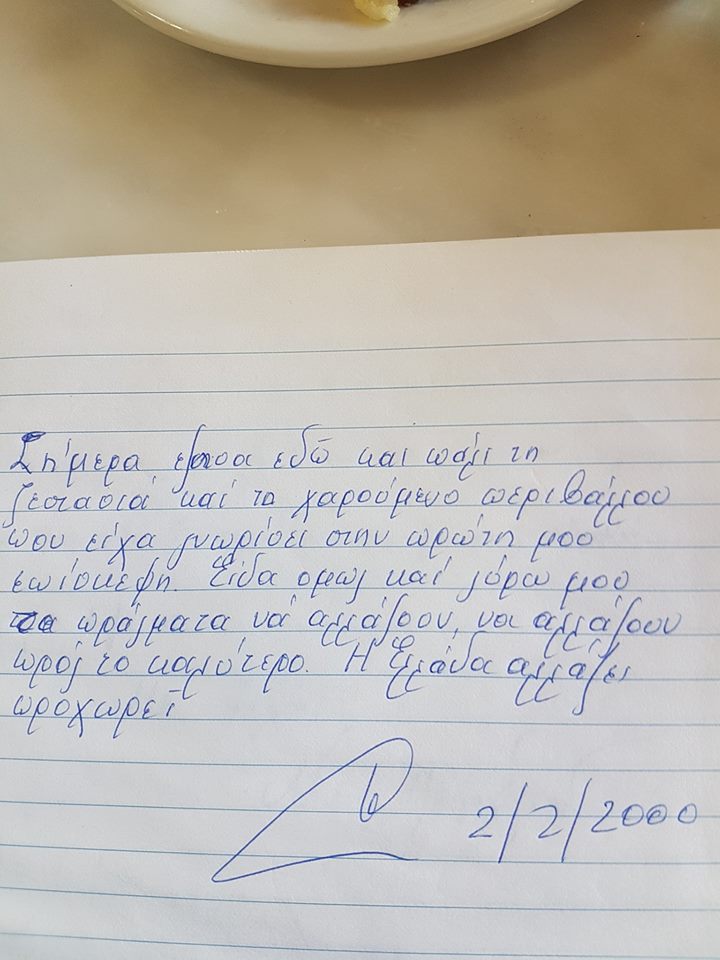 Σήμερα έζησα εδώ και πάλι τη
ζεστασιά καί το χαρούμενο περιβάλλον
που είχα γνωρίσει στην πρώτη μου
επίσκεψη. Είδα ομως καί γύρω μου
τα πράγματα νά αλλάζουν, να αλλάζουν
πρός το καλύτερο. Η Ελλάδα αλλάζει
προχωρεί
2/2/2000